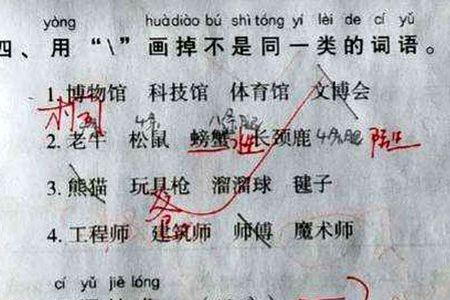 yòng huàdiào bú shì tóng yí lèi de cí yǔ
四、用“\”画掉不是同一类的词语。
1. 博物馆 科技馆 体育馆 文博会
2. 老牛 松鼠 螃蟹 长颈鹿
4条 八条腿 4条腿
3. 熊猫 玩具枪 溜溜球 毽子
4. 工程师 建筑师 师傅 魔术师
cí yǔ jiē lóng